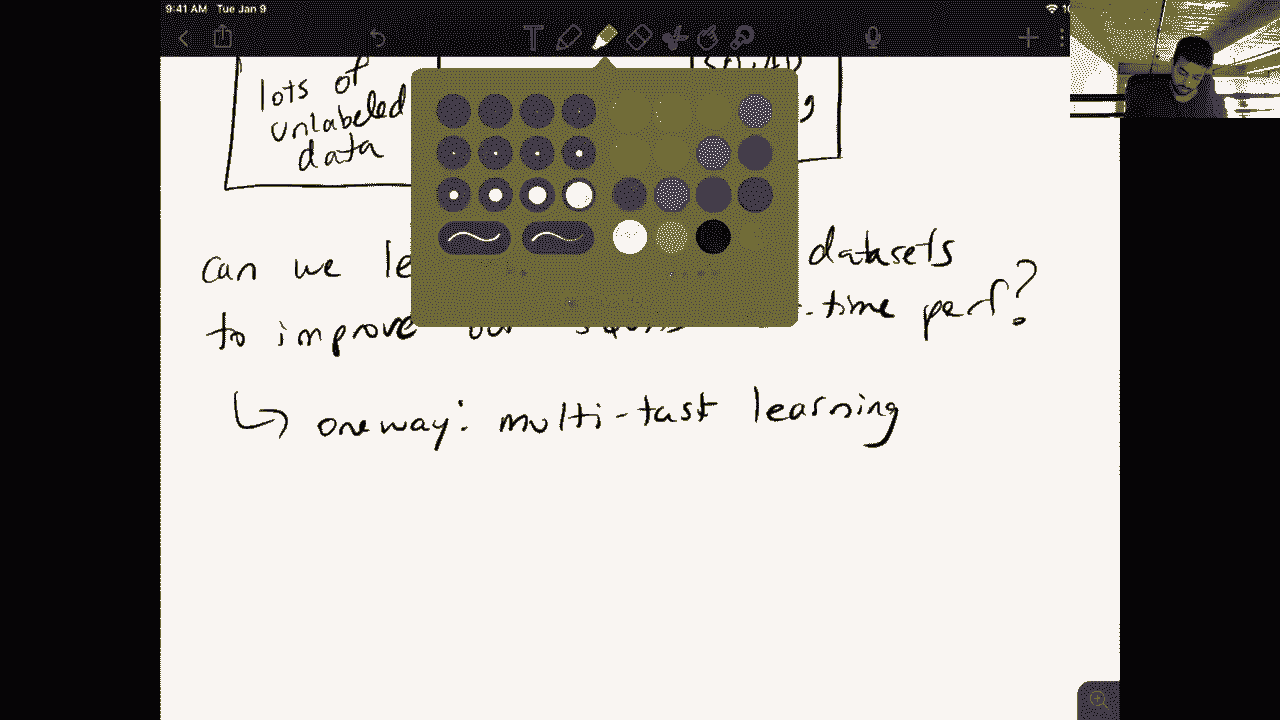 9:41 AM Tue Jan 9
lots of
unlabeled
data
can we le datasets
to improve our -time perf?
↳ one way: multi-tast learning